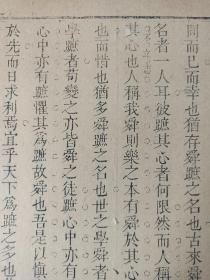 則而已而幸也猶存舜蹠之名也古來彙
名者一人耳彼蹠其心者何限然而人稱
其心也人稱我舜則樂之本有舜於其心
也而惜也猶多舜蹠之名也世之學舜者
學蹠者苟變之亦皆舜之徒蹠心中亦有
心中亦有蹠懼其為蹠故舜也吾是以慎
於先而日求利焉宜乎天下為蹠之多也